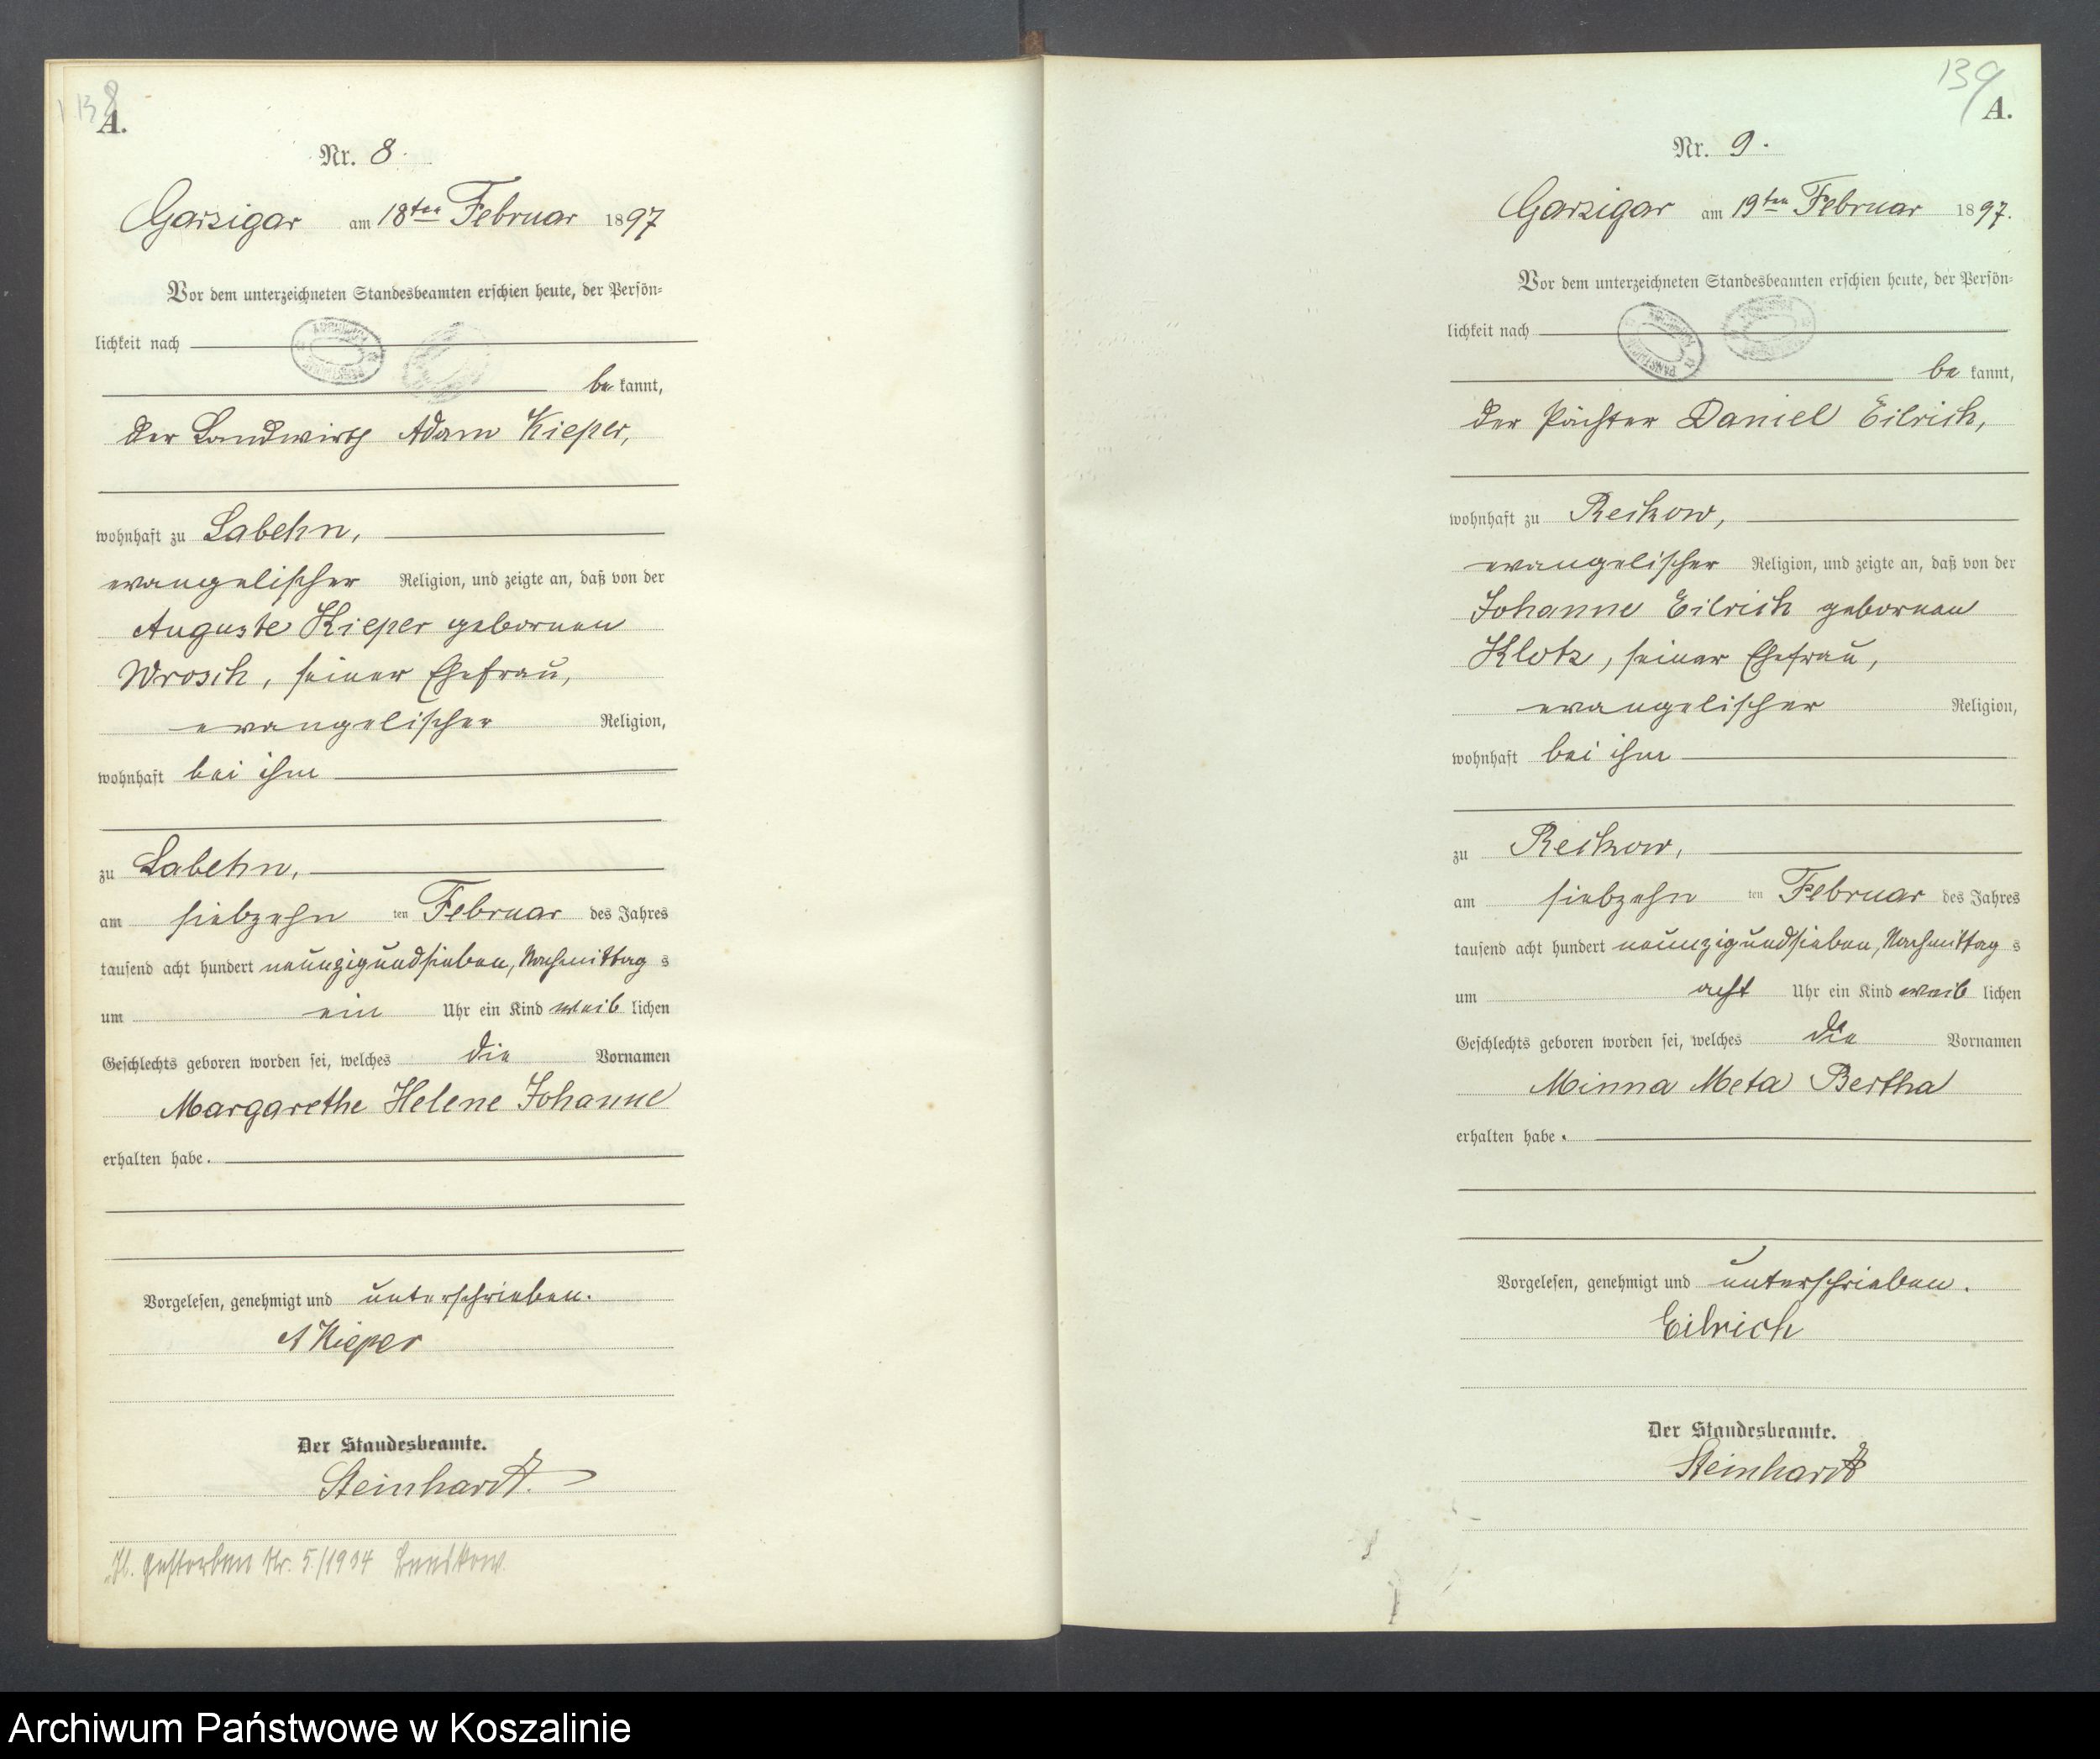 138
A.
Nr. 8.
Garzigar am 18ten Februar 1897
Vor dem unterzeichneten Standesbeamten erschien heute, der Persön-
lichkeit nach
be kannt,
der Landwirth Adam Kieper,
wohnhaft zu Labehn,
evangelischer Religion, und zeigte an, daß von der
Auguste Kieper gebornen
Wrosch, seiner Ehefrau,
evangelischer Religion,
wohnhaft bei ihm
zu Labehn,
am siebzehn ten Februar des Jahres
tausend acht hundert neunzigundsieben, Nachmittag s
um ein Uhr ein Kind weib lichen
Geschlechts geboren worden sei, welches die Vornamen
Margarethe Helene Johanne
erhalten habe.
Vorgelesen, genehmigt und unterschrieben.
A Kieper
Der Standesbeamte.
Steinhardt.
gestorben Nr. 5/1934
139
A.
Nr. 9.
Garzigar am 19ten Februar 1897.
Vor dem unterzeichneten Standesbeamten erschien heute, der Persön-
lichkeit nach
be kannt,
der Pächter Daniel Eilrich,
wohnhaft zu Reckow,
evangelischer Religion, und zeigte an, daß von der
Johanne Eilrich gebornen
Klotz, seiner Ehefrau,
evangelischer Religion,
wohnhaft bei ihm
zu Reckow,
am siebzehn ten Februar des Jahres
tausend acht hundert neunzigundsieben, Nachmittag s
um acht Uhr ein Kind weib lichen
Geschlechts geboren worden sei, welches die Vornamen
Minna Meta Bertha
erhalten habe.
Vorgelesen, genehmigt und unterschrieben.
Eilrich
Der Standesbeamte.
Steinhardt
Archiwum Państwowe w Koszalinie